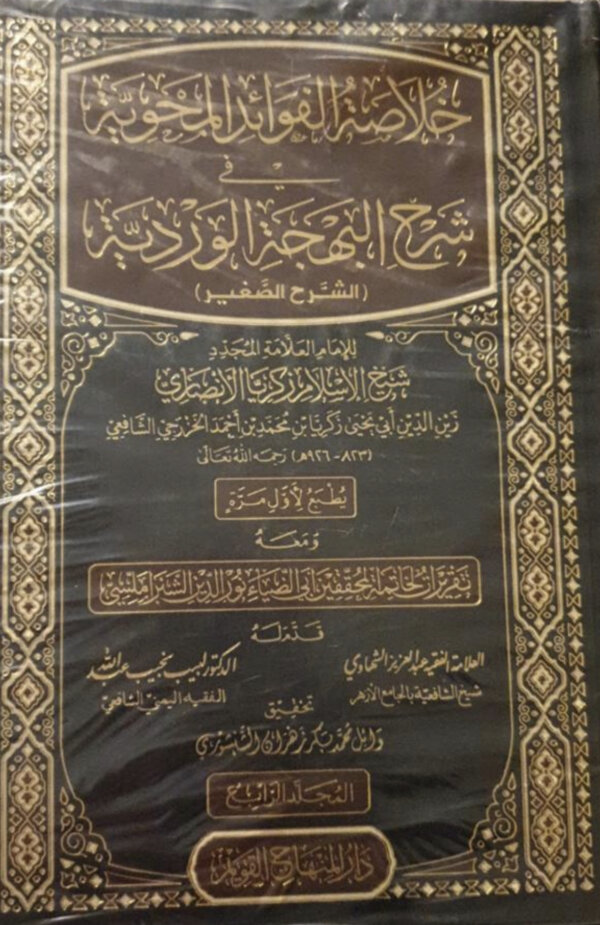 خُلَاصَةُ الفَوَائِدِ المَحْوِيَّة
في
شَرْحِ البَهْجَةِ الوَرْدِيَّة
(الشَّرْح الصَّغِير)
لِلإمَامِ العَلَّامَةِ المُجَدِّدِ
شَيْخِ الإِسْلَامِ زَكَرِيَّا الأَنْصَارِي
زَيْنِ الدِّينِ أَبِي يَحْيَى زَكَرِيَّا بْنِ مُحَمَّدِ بْنِ أَحْمَدَ الخَزْرَجِيِّ الشَّافِعِيِّ
(٨٢٣-٩٢٦هـ) رَحِمَهُ اللهُ تَعَالَى
يُطْبَعُ لِأَوَّلِ مَرَّةٍ
وَمَعَهُ
تَقْرِيرَاتٌ لِخَاتِمَةِ المُحَقِّقِينَ أَبِي الضِّيَاءِ نُورِ الدِّينِ الشَّبْرَامَلِّسِي
قَدَّمَ لَهُ
العلامة الفقيه عبد العزيز الشهاوي
الدكتور لبيب نجيب عبد الله
شيخ الشافعية بالجامع الأزهر
الفقيه اليمني الشافعي
تحقيق
وائل محمد بكر زهران الشنشوري
المُجَلَّد الرَّابِع
دَارُ المِنْهَاجِ القَوِيم